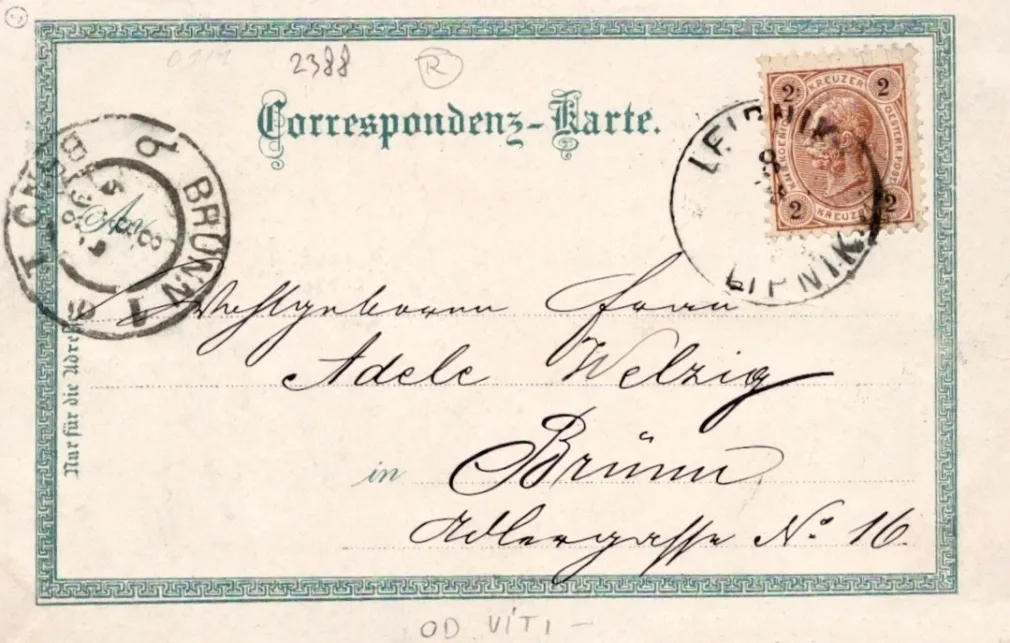 2388 R
Correspondenz-Karte.
2 KREUZER 2
2 KREUZER 2
LEIPNIK
LIPNIK
BRÜNN
1
An
Wohlgeboren Frau
Adele Welzig
in Brünn
Adlergasse No. 16.
Nur für die Adresse
OD VÍTI -